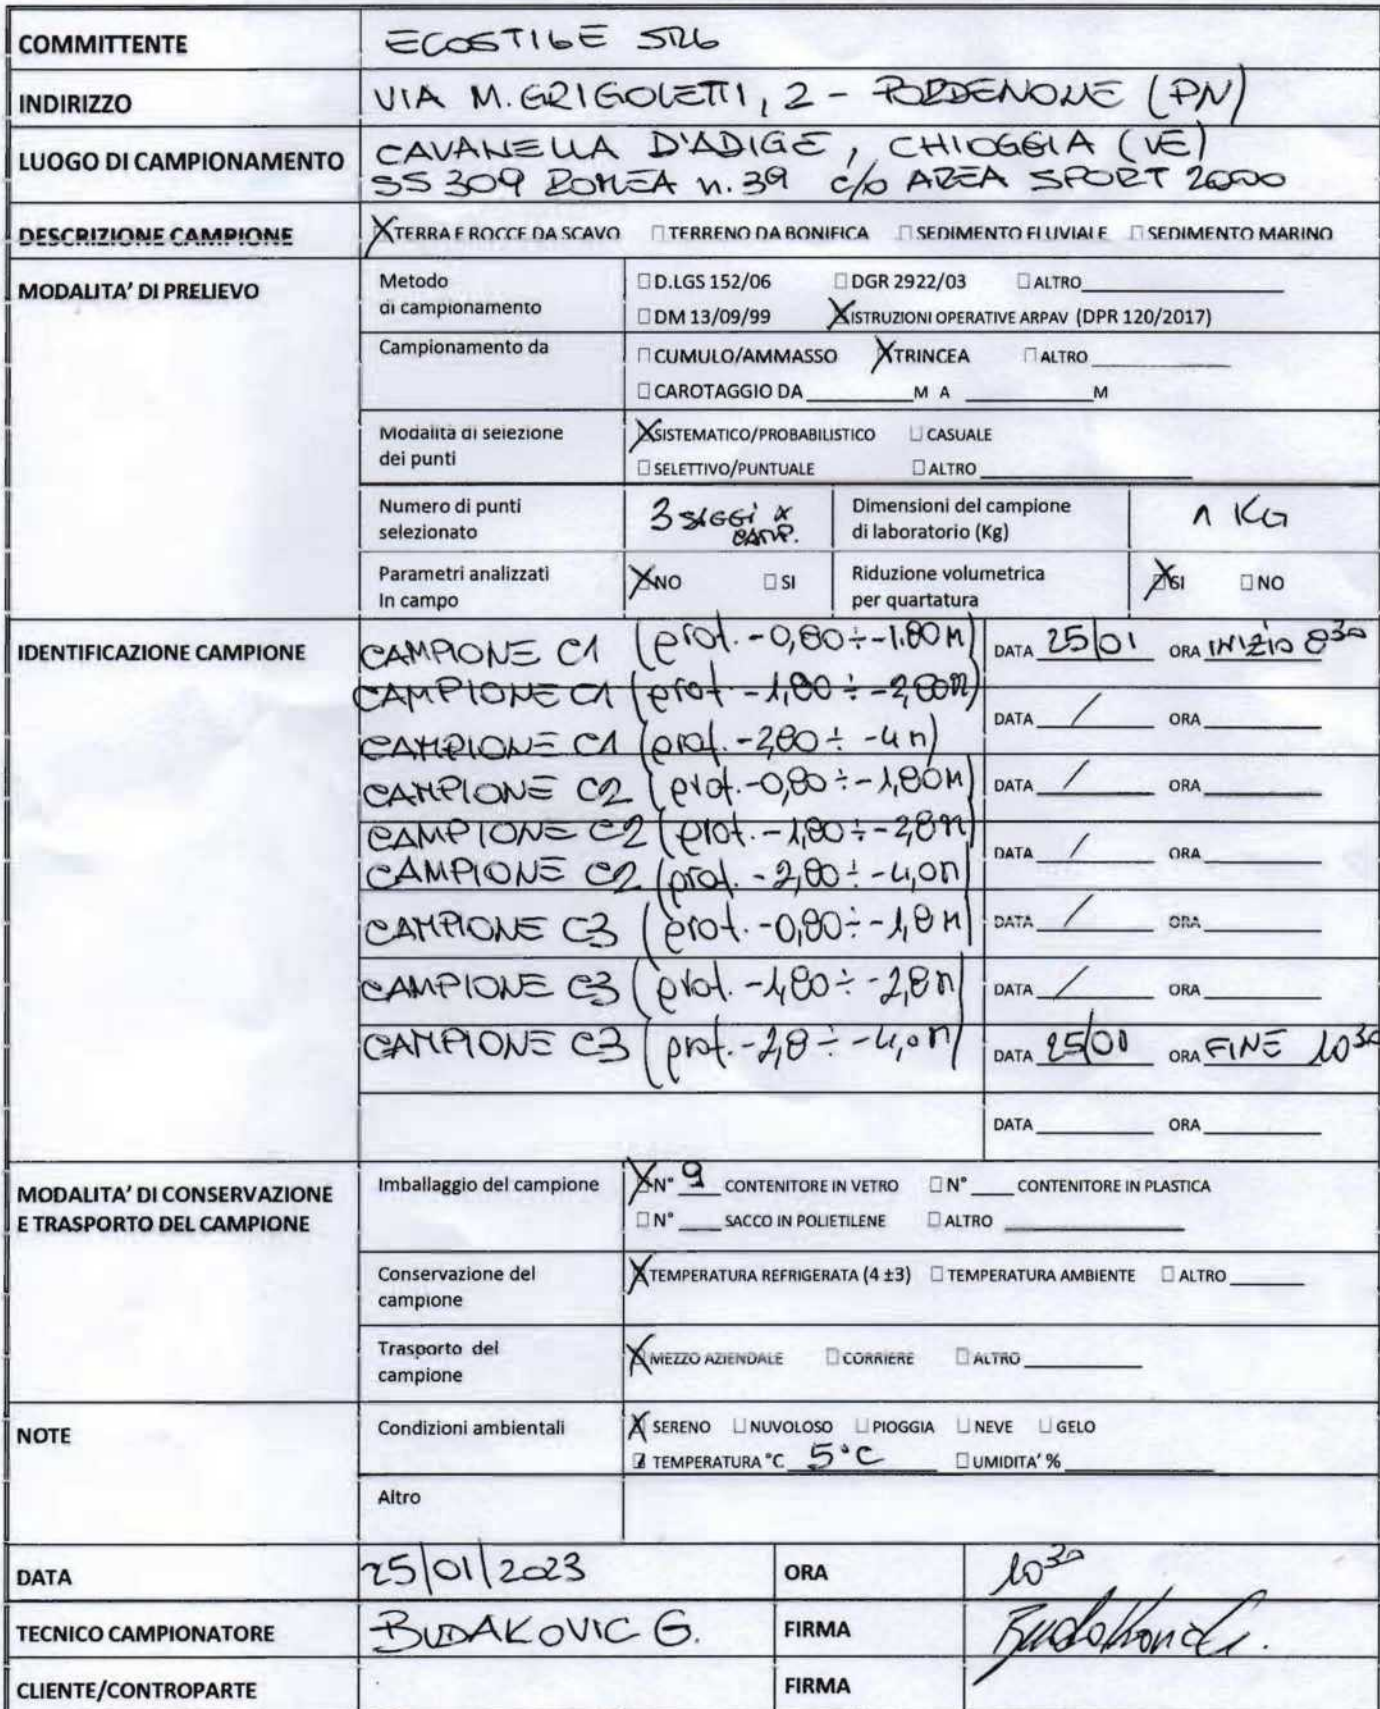 COMMITTENTE ECOSTILE SRL
INDIRIZZO VIA M. GRIGOLETTI, 2 - PORDENONE (PN)
LUOGO DI CAMPIONAMENTO CAVANELLA D'ADIGE, CHIOGGIA (VE)
SS 309 ROMEA n. 39 c/o AREA SPORT 2000
DESCRIZIONE CAMPIONE X TERRA E ROCCE DA SCAVO □ TERRENO DA BONIFICA □ SEDIMENTO FLUVIALE □ SEDIMENTO MARINO
MODALITA' DI PRELIEVO
Metodo
di campionamento
□ D.LGS 152/06 □ DGR 2922/03 □ ALTRO
□ DM 13/09/99 X ISTRUZIONI OPERATIVE ARPAV (DPR 120/2017)
Campionamento da
□ CUMULO/AMMASSO X TRINCEA □ ALTRO
□ CAROTAGGIO DA M A M
Modalità di selezione
dei punti
X SISTEMATICO/PROBABILISTICO □ CASUALE
□ SELETTIVO/PUNTUALE □ ALTRO
Numero di punti
selezionato
3 SAGGI X
CAMP.
Dimensioni del campione
di laboratorio (Kg)
1 KG
Parametri analizzati
In campo
X NO □ SI
Riduzione volumetrica
per quartatura
X SI □ NO
IDENTIFICAZIONE CAMPIONE
CAMPIONE C1 (prof. -0,80 ÷ -1.80 M) DATA 25/01 ORA INIZIO 8³⁰
CAMPIONE C1 (prof. -1,80 ÷ -2,80 m) DATA / ORA
CAMPIONE C1 (prof. -2,80 ÷ -4 m)
CAMPIONE C2 (prof. -0,80 ÷ -1,80 M) DATA / ORA
CAMPIONE C2 (prof. -1,80 ÷ -2,8 m) DATA / ORA
CAMPIONE C2 (prof. -2,80 ÷ -4,0 m)
CAMPIONE C3 (prof. -0,80 ÷ -1,8 M) DATA / ORA
CAMPIONE C3 (prof. -1,80 ÷ -2,8 m) DATA / ORA
CAMPIONE C3 (prof. -2,8 ÷ -4,0 m) DATA 25/01 ORA FINE 10³⁰
DATA ORA
MODALITA' DI CONSERVAZIONE
E TRASPORTO DEL CAMPIONE
Imballaggio del campione
X N° 9 CONTENITORE IN VETRO □ N° CONTENITORE IN PLASTICA
□ N° SACCO IN POLIETILENE □ ALTRO
Conservazione del
campione
X TEMPERATURA REFRIGERATA (4 ±3) □ TEMPERATURA AMBIENTE □ ALTRO
Trasporto del
campione
X MEZZO AZIENDALE □ CORRIERE □ ALTRO
NOTE
Condizioni ambientali
X SERENO □ NUVOLOSO □ PIOGGIA □ NEVE □ GELO
☑ TEMPERATURA °C 5°C □ UMIDITA' %
Altro
DATA 25/01/2023 ORA 10³⁰
TECNICO CAMPIONATORE BUDAKOVIC G. FIRMA
CLIENTE/CONTROPARTE FIRMA